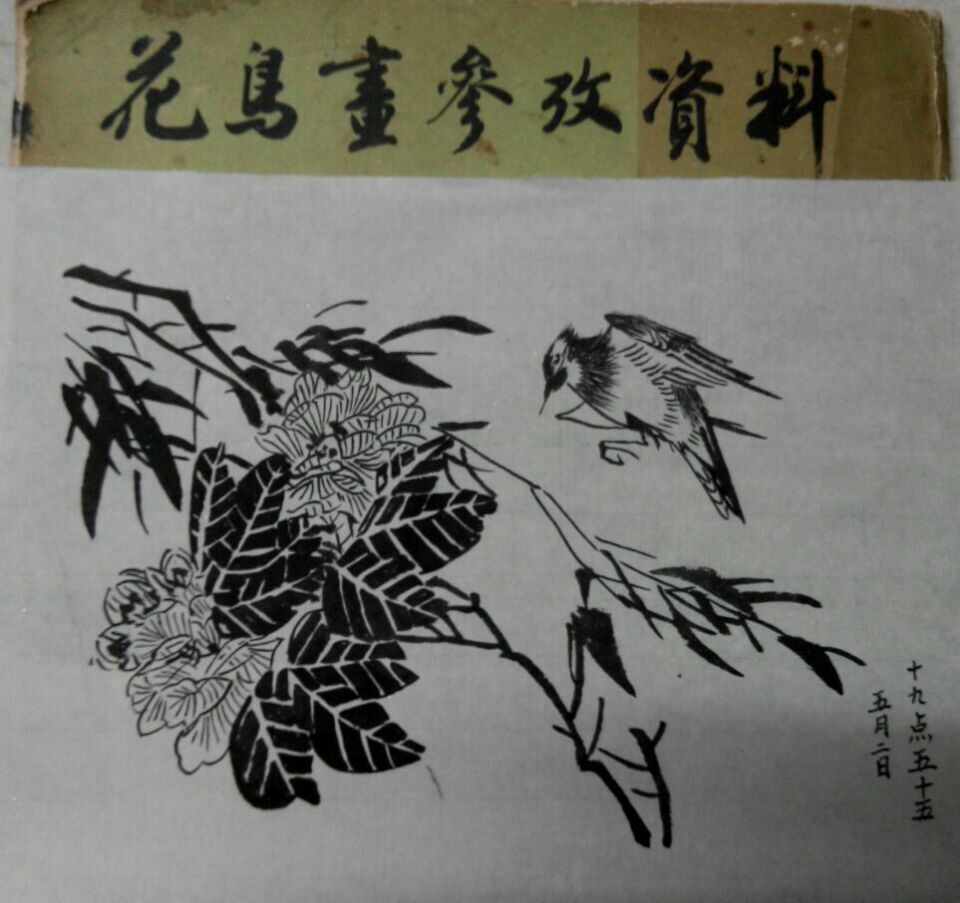 花鳥畫參攷資料
十九点五十五
五月二日